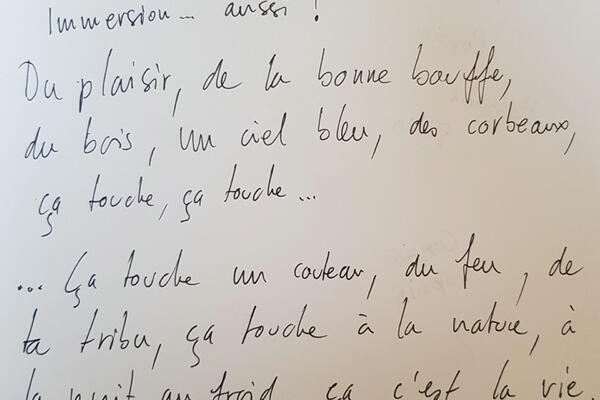 Immersion... aussi !
Du plaisir, de la bonne bouffe,
du bois, un ciel bleu, des corbeaux,
ça touche, ça touche...
... Ça touche un couteau, du feu, de
ta tribu, ça touche à la nature, à
la nuit au froid ça c'est la vie.